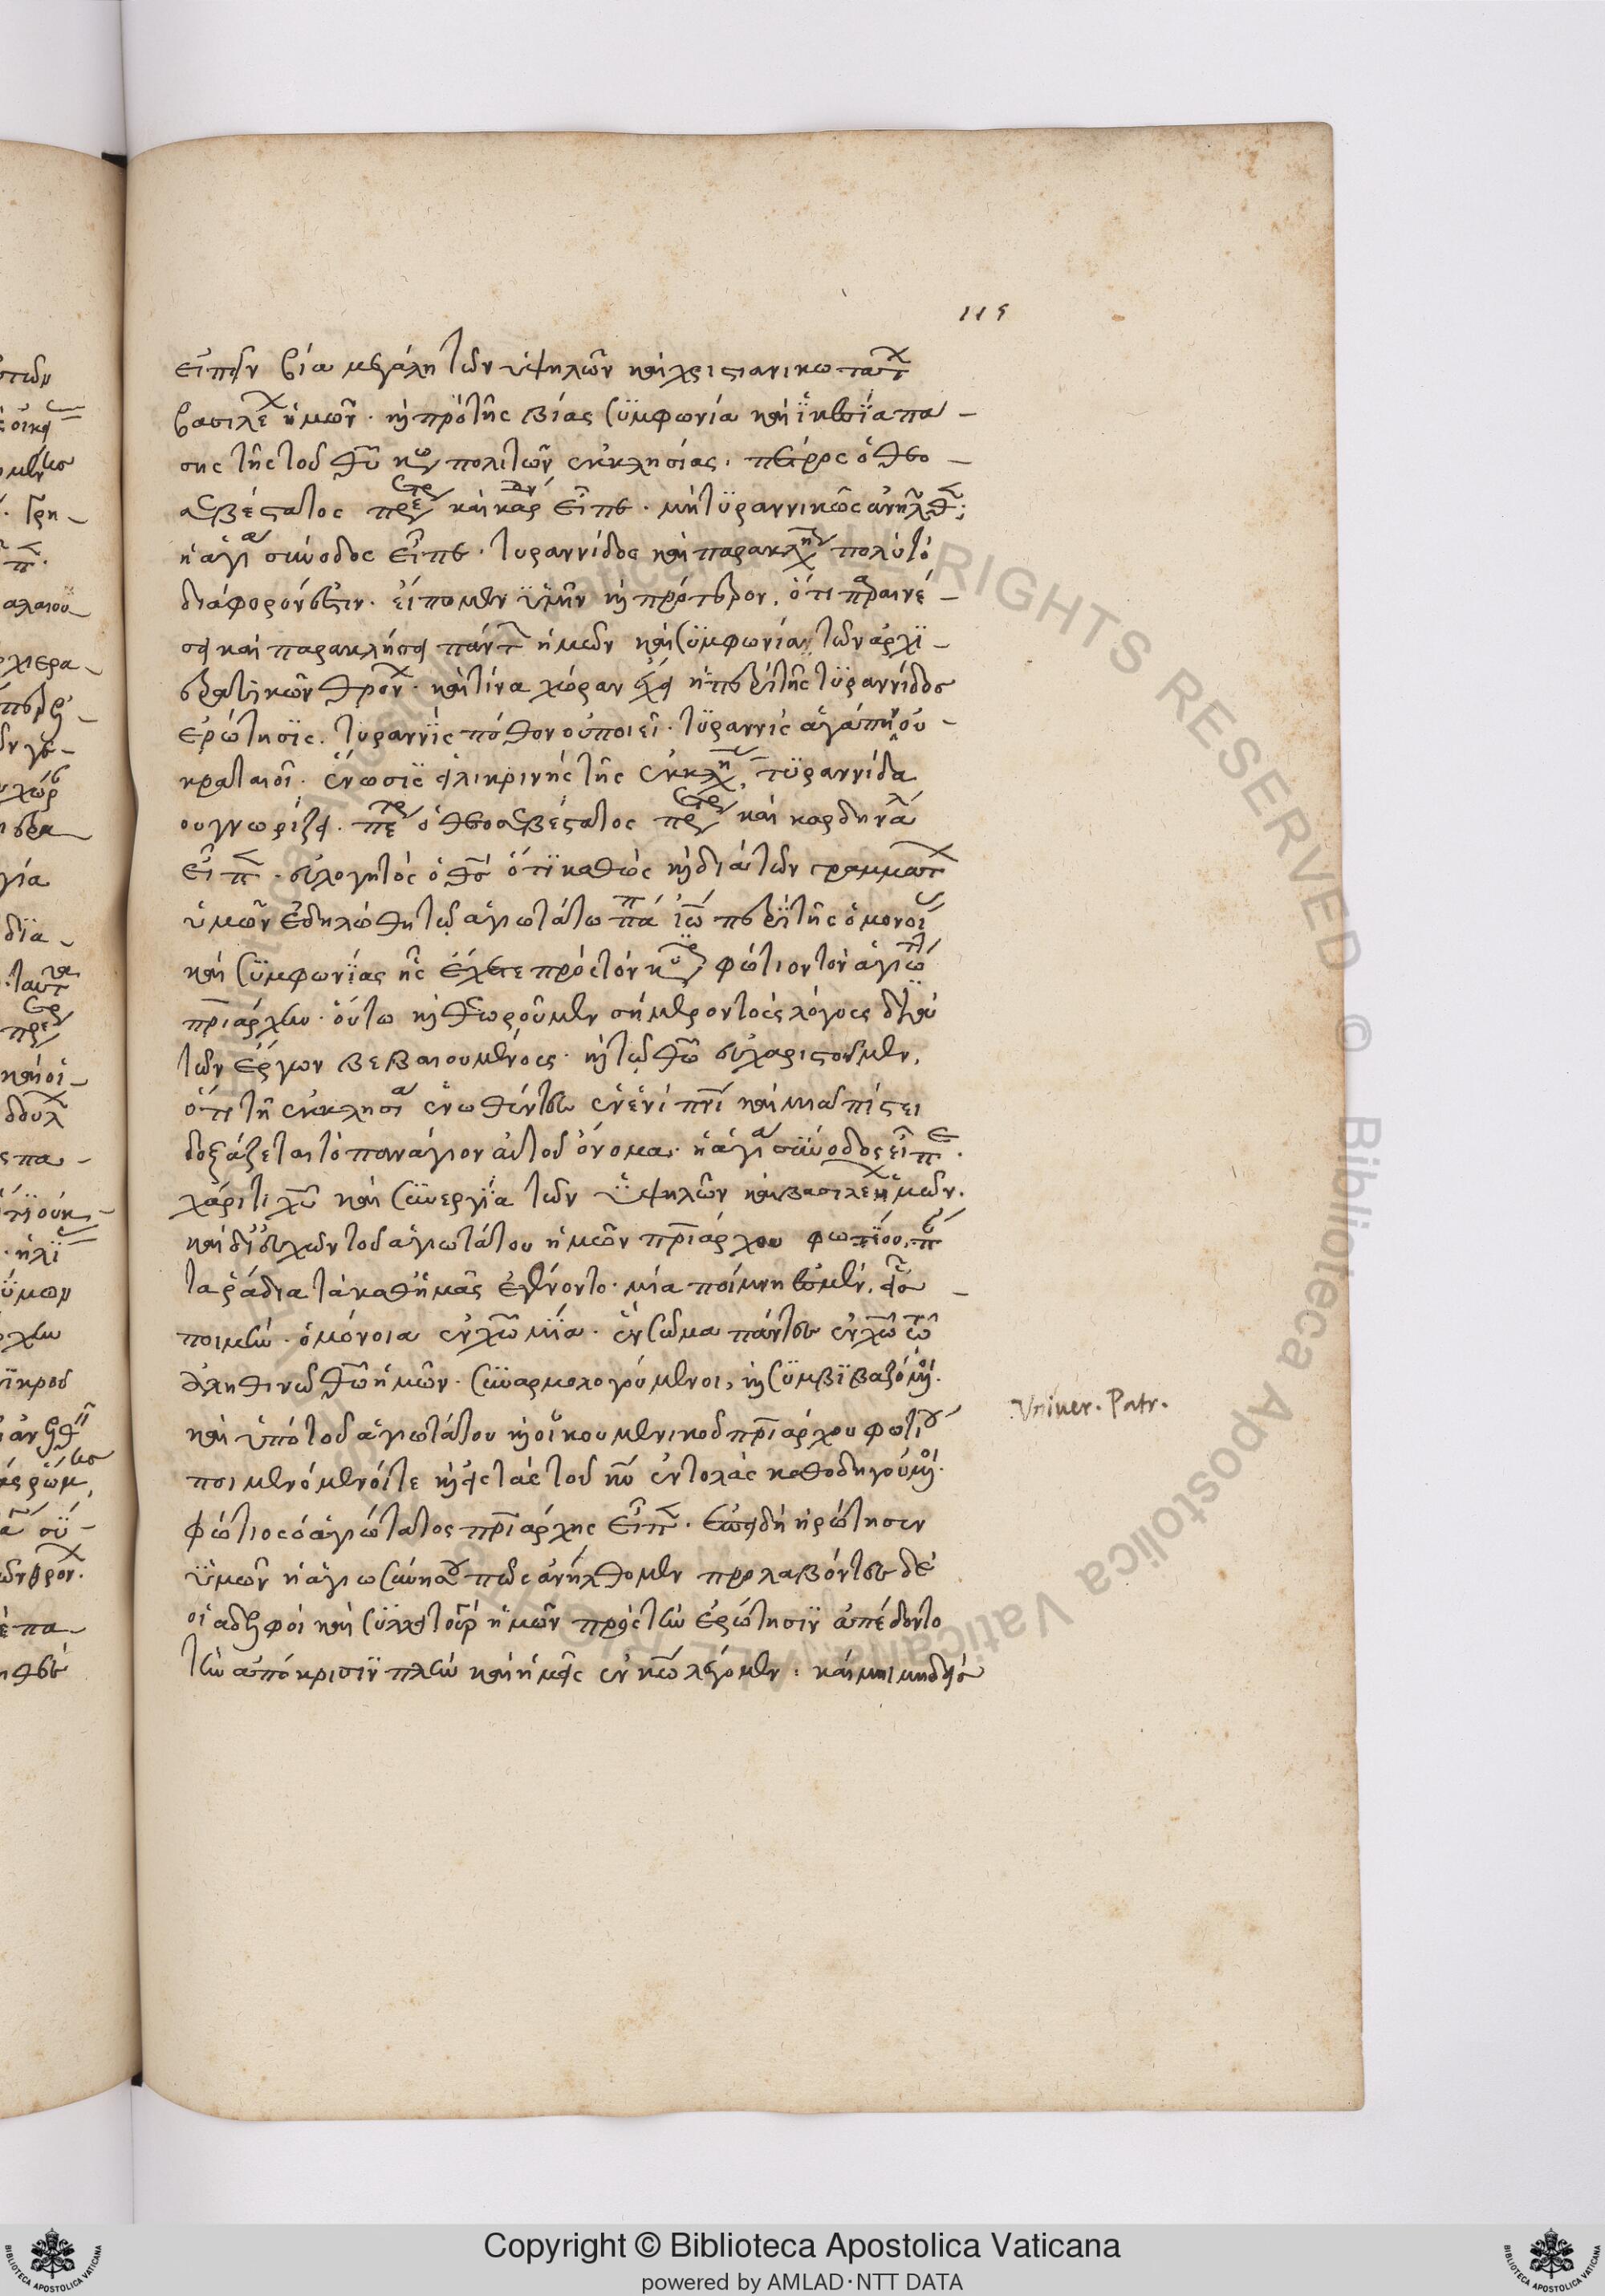 115
εἶπεν βία μεγάλη τῶν ὑψηλῶν καὶ χριστιανικωτάτ
βασιλέ ἡμῶν · καὶ πρὸ τῆς βίας συμφωνία καὶ ἱκεσία πα-
σης τῆς τοῦ θῦ κω πολιτῶν ἐκκλησίας · πέτρος ὁ θεο-
σεβέστατος πρε καὶ καρ εἶπε · μὴ τυραννικῶς ἀνῆλθ;
ἡ ἁγί σύνοδος εἶπε · τυραννίδος καὶ παρακλη πολὺ τὸ
διάφορόν ἐστιν · εἴπομεν ὑμῖν καὶ πρότερον, ὅτι παραινέ-
σει καὶ παρακλήσει πάντ ἡμῶν καὶ συμφωνία τῶν ἀρχι-
ερατικῶν θρόν · καὶ τίνα χώραν ἔχει ἡ περὶ τῆς τυραννίδος
ἐρώτησις · τυραννὶς πόθον οὐ ποιεῖ · τυραννὶς ἀγάπην οὐ
κραταιοῖ · ἕνωσις εἰλικρινὴς τῆς ἐκκλη τυραννίδα
οὐ γνωρίζει · πε ὁ θεοσεβέστατος πρ καὶ καρδηνά
εἶπ · εὐλογητὸς ὁ θς ὅτι καθὼς καὶ διὰ τῶν γραμμάτ
ὑμῶν ἐδηλώθη τῷ ἁγιωτάτω πά ἰω περὶ τῆς ὁμονοί
καὶ συμφωνίας ἧς ἔχετε πρὸς τὸν κυ φώτιον τὸν ἁγιώ
πριάρχην · οὕτω καὶ θεωροῦμεν σήμερον τοὺς λόγους διὰ
τῶν ἔργων βεβαιουμένους · καὶ τῷ θῶ εὐχαριστοῦμεν,
ὅτι τῇ ἐκκλησί ἑνωθέντες ἐν ἑνὶ πνι καὶ μιᾷ πίστει
δοξάζεται τὸ πανάγιον αὐτοῦ ὄνομα · ἡ ἁγί σύνοδος εἶπε ·
χάριτι χυ καὶ συνεργία τῶν ὑψηλῶν καὶ βασιλέ ἡμῶν ·
καὶ δι' εὐχῶν τοῦ ἁγιωτάτου ἡμῶν πριάρχου φωτίου, π
τα ῥάδια τὰ καθ' ἡμᾶς ἐγένοντο · μία ποίμνη ἐσμέν, εἷς
ποιμήν · ὁμόνοια ἐν χω μία · ἓν σῶμα πάντες ἐν χω τῶ
ἀληθινῷ θῶ ἡμῶν · συναρμολογούμενοι, καὶ συμβιβαζόμ ·
καὶ ὑπὸ τοῦ ἁγιωτάτου καὶ οἰκουμενικοῦ πριάρχου φωτί
ποιμενόμενοί τε καὶ εἰς τὰς τοῦ κυ ἐντολὰς καθοδηγούμ ·
φώτιος ὁ ἁγιώτατος πριάρχης εἶπ · ἐπειδὴ ἠρώτησεν
ὑμῶν ἡ ἁγιωσύνη πῶς ἀνήχθομεν προλαβόντες δὲ
οἱ ἀδελφοὶ καὶ συλλειτουρ ἡμῶν πρὸς τὴν ἐρώτησιν ἀπέδοντο
τὴν ἀπόκρισιν πλὴν καὶ ἡμεῖς ἐν κω λέγομεν · καὶ μηδεὶς
Vniuer. Patr.
Copyright © Biblioteca Apostolica Vaticana
powered by AMLAD·NTT DATA